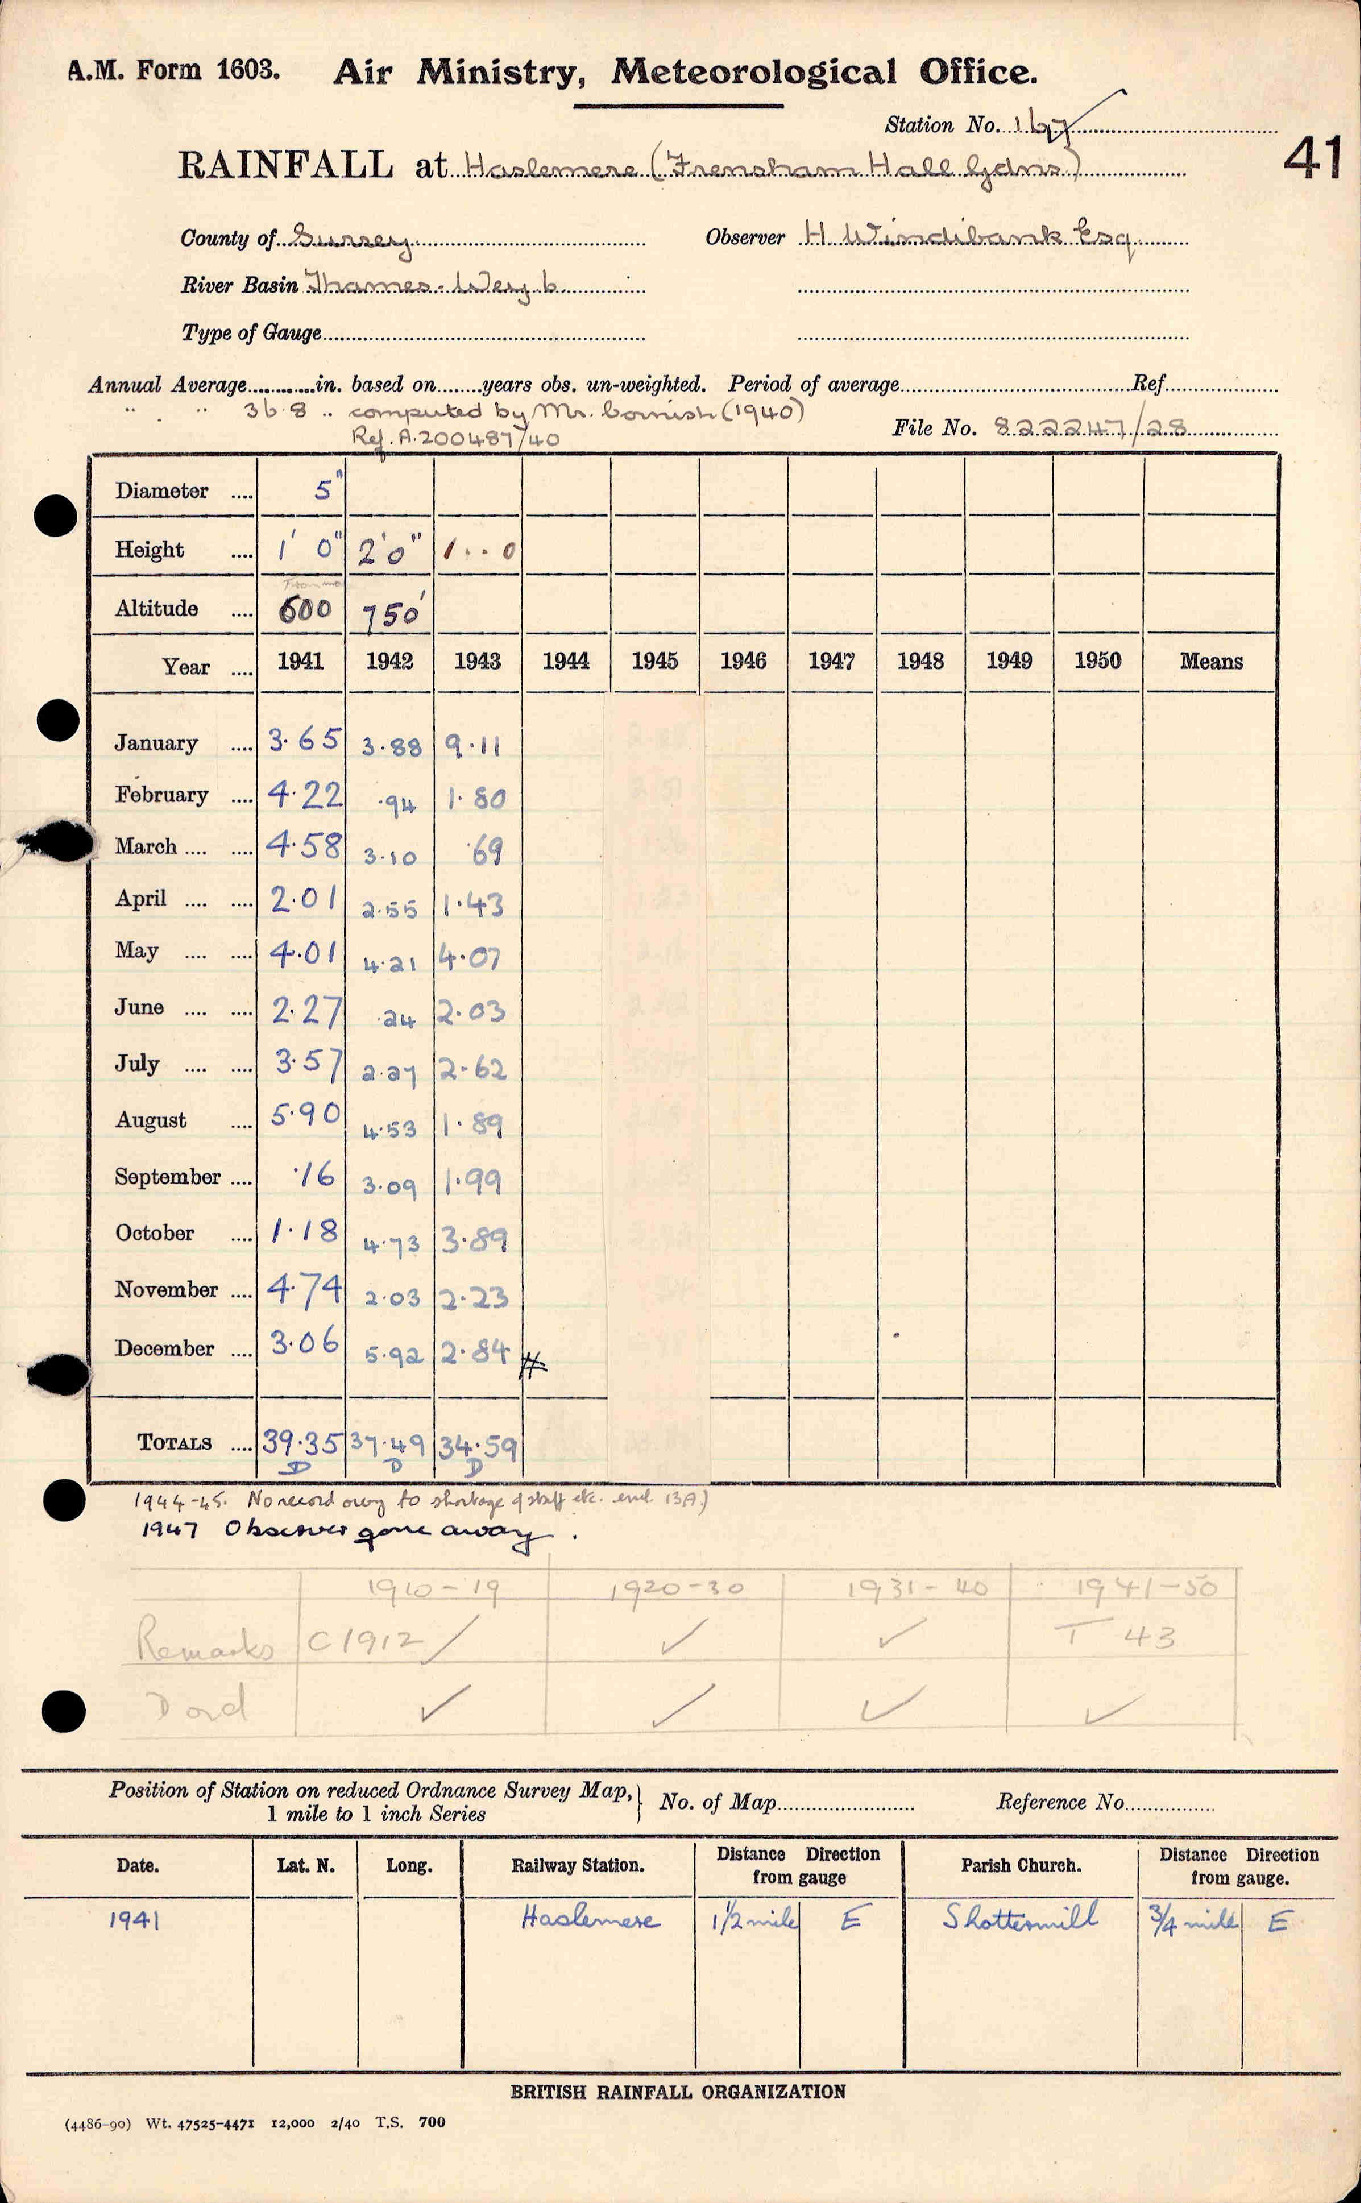 A.M. Form 1603. Air Ministry, Meteorological Office.
Station No. 167
41
RAINFALL at Haslemere (Frensham Hall Gdns)
County of Surrey Observer H Windibank Esq
River Basin Thames-Wey b
Type of Gauge
Annual Average in. based on years obs. un-weighted. Period of average Ref
" " 36.8 .. computed by Mr. Cornish (1940)
Ref. A.200487/40
File No. 822247/28
Diameter 5"
Height 1' 0" 2'0" 1..0
Altitude 600 750'
Year 1941 1942 1943 1944 1945 1946 1947 1948 1949 1950 Means
January 3.65 3.88 9.11
February 4.22 .94 1.80
March 4.58 3.10 .69
April 2.01 2.55 1.43
May 4.01 4.21 4.07
June 2.27 .24 2.03
July 3.57 2.27 2.62
August 5.90 4.53 1.89
September .16 3.09 1.99
October 1.18 4.73 3.89
November 4.74 2.03 2.23
December 3.06 5.92 2.84 #
TOTALS 39.35 37.49 34.59
D D D
1944-45. No record owing to shortage of staff etc. encl. 13A)
1947 Observer gone away.
1910-19 1920-30 1931-40 1941-50
Remarks C1912/ ✓ ✓ T 43
D ord ✓ ✓ ✓ ✓
Position of Station on reduced Ordnance Survey Map, 1 mile to 1 inch Series } No. of Map Reference No.
Date. Lat. N. Long. Railway Station. Distance from gauge Direction Parish Church. Distance from gauge. Direction
1941 Haslemere 1½ mile E Shottermill ¾ mile E
BRITISH RAINFALL ORGANIZATION
(4486-90) Wt. 47525-4471 12,000 2/40 T.S. 700